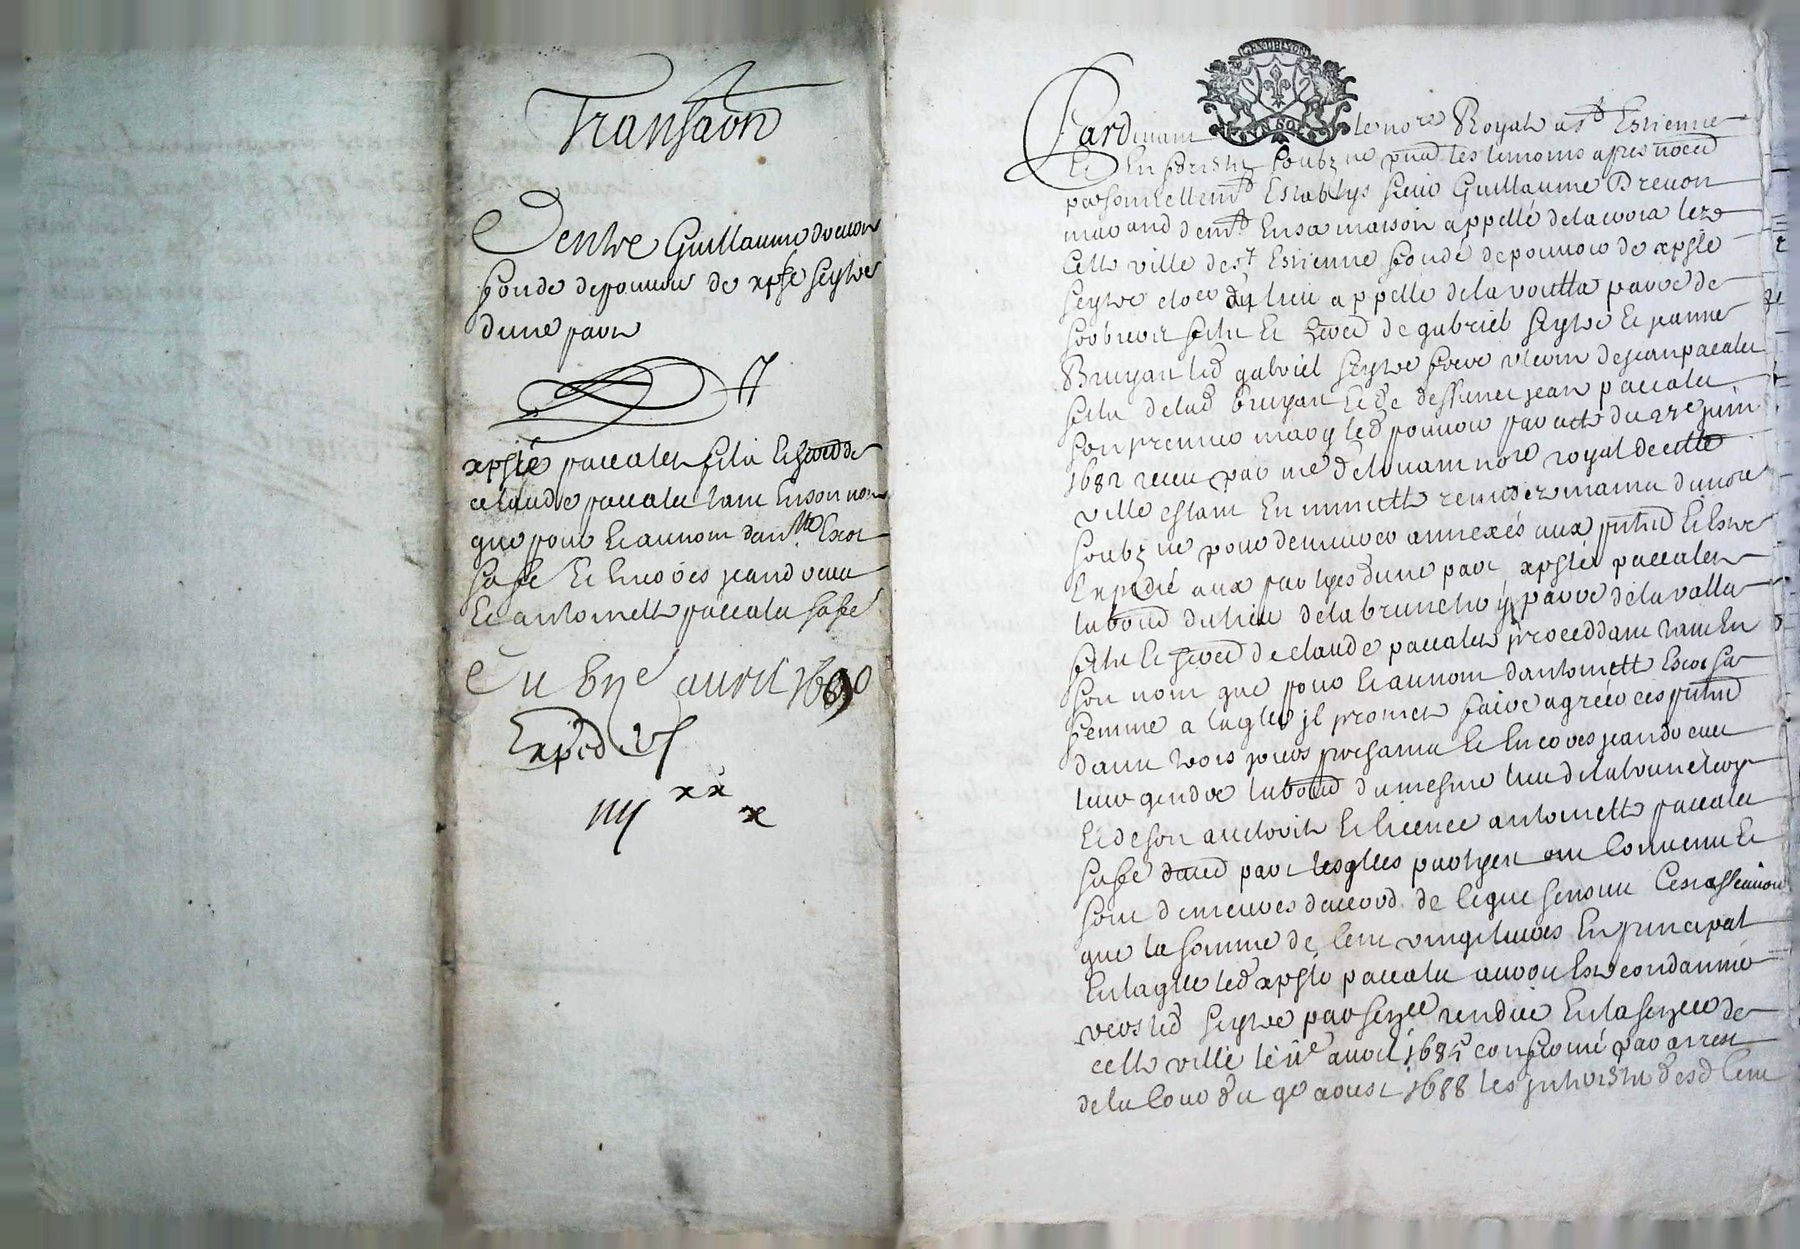 Transaon
Dentre Guillaume dreuon
fondé de pouuoir de xpfle seytre
dune part
Et
xpfle paccalet filz et heored de
claude paccalet tant en son nom
que pour et au nom dant.tte Escot
sa fe et encores jean dreuet
et antoinette paccalet sa fe
Du 6me auril 1690
Exped
iiij xx x
GEN DE LYON
VN SOL
Pardeuant le nore Royal a st Estienne
en forestz soubz ne pnt les temoins apres nomed
personnellemt Establys sieur Guillaume Dreuon
marand demt en sa maison appellé de la lez
cette ville de st Estienne fondé de pouuoir de xpfle
seytre du lieu appellé de la voulta parre de
filz et heored de gabriel seytre et jeanne
Bruyan led gabriel seytre frere vterin de jean paccalet
filz de lad bruyan et de deffunct jean paccalet
son premier mary led pouuoir par acte du 22e juin
1682 receu par me nore royal de cette
ville estant en minutte remise ez mains du nore
soubz ne pour demeurer annexés aux pntes et estre
Expedié aux partyes dune part xpfle paccalet
labour du lieu de la brunetiry parre de la valla
filz et heored de claude paccalet proceddant tant en
son nom que pour et au nom dantoinette Escot sa
femme a laqlle il promet faire agréer ces pntes
dans trois jours prochains et encores jean dreuet
leur gendre labour du mesme lieu de la brunetiry
et de son authorité et licence antoinette paccalet
sa fe dautre part lesqlles partyes ont conuenu et
sont demeures daccord de ce que sensuit Cest assauoir
que la somme de cent vingt liures en principal
en laqlle led xpfle paccalet auroit esté condanné
vers led seytre par senzce rendue en la senzce de
cette ville le 11e auril 1685 confirmé par arrest
de la cour du 9e aoust 1688 les jnteretz desd cent